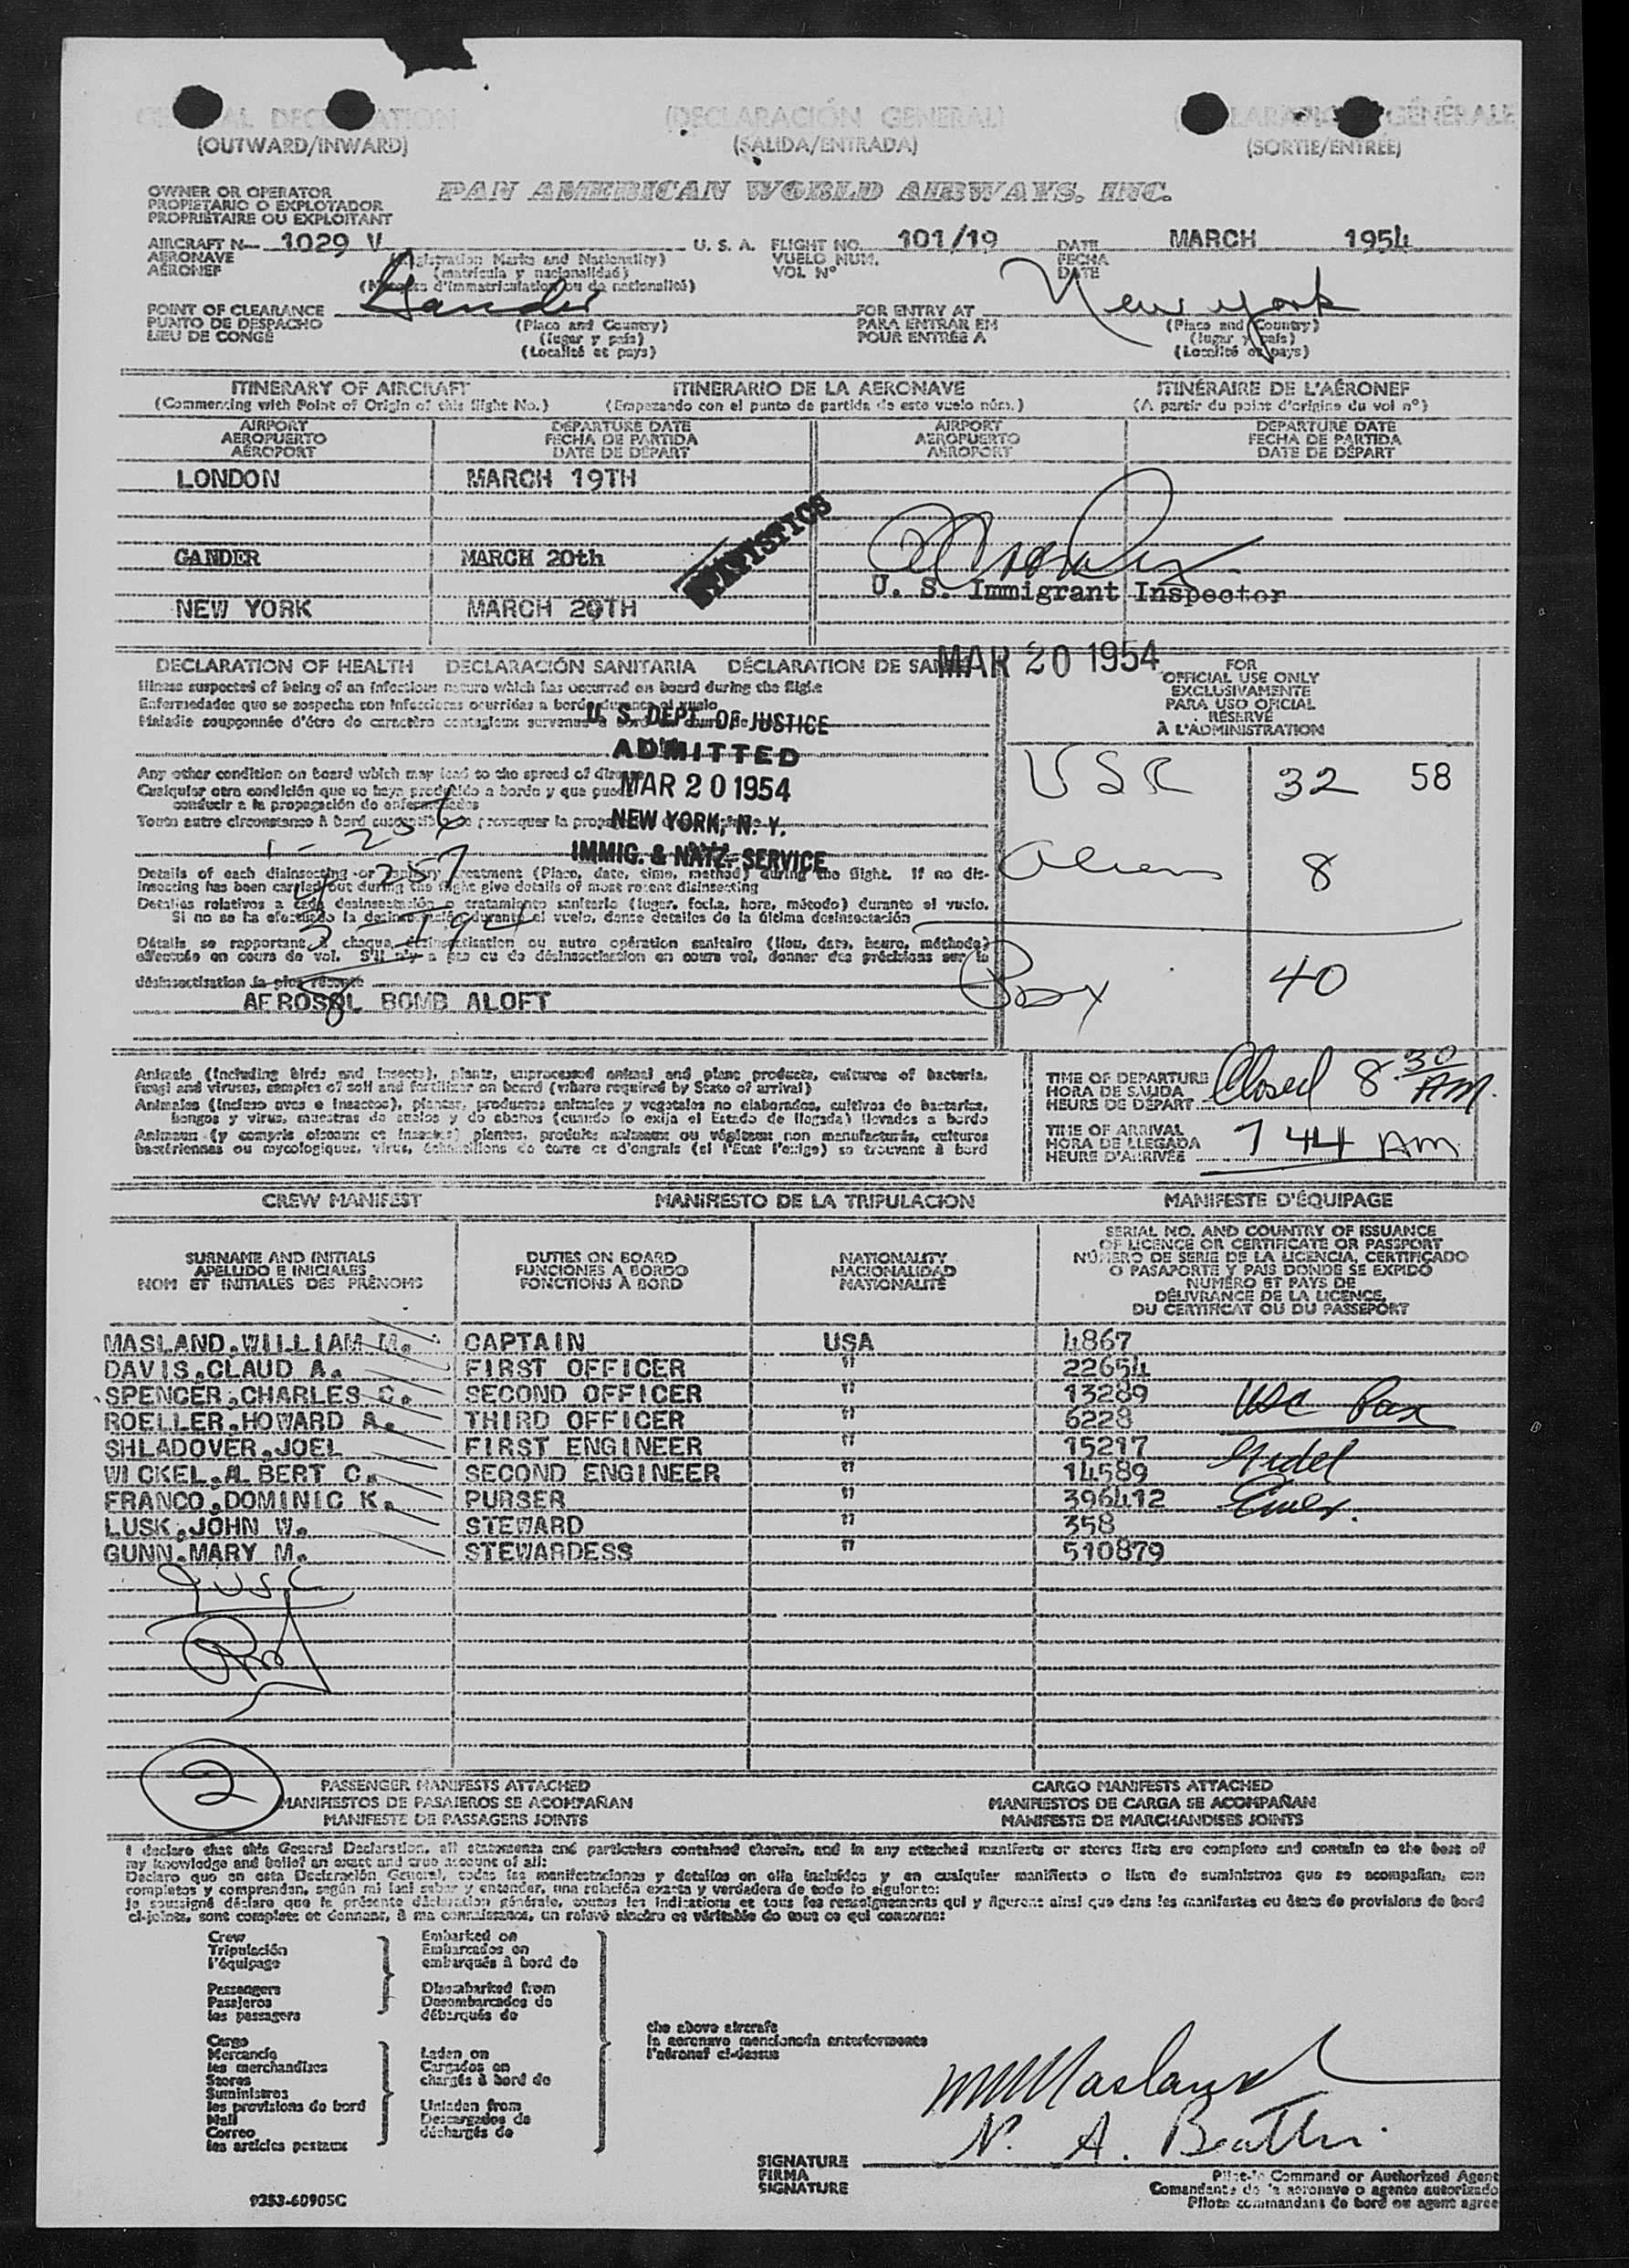 (DECLARACIÓN GENERAL)
(OUTWARD/INWARD) (SALIDA/ENTRADA) (SORTIE/ENTRÉE)
OWNER OR OPERATOR
PROPIETARIO O EXPLOTADOR
PROPRIÉTAIRE OU EXPLOITANT
PAN AMERICAN WORLD AIRWAYS, INC.
AIRCRAFT N— 1029 V U. S. A. FLIGHT NO. 101/19 DATE MARCH 1954
AERONAVE VUELO NUM. FECHA
AÉRONEF VOL Nº DATE
(Registration Marks and Nationality)
(matrícula y nacionalidad)
(Marques d'immatriculation ou de nationalité)
POINT OF CLEARANCE Gander FOR ENTRY AT New York
PUNTO DE DESPACHO (Place and Country) PARA ENTRAR EN (Place and Country)
LIEU DE CONGÉ (lugar y país) POUR ENTRÉE A (lugar y país)
(Localité et pays) (Localité et pays)
ITINERARY OF AIRCRAFT ITINERARIO DE LA AERONAVE ITINÉRAIRE DE L'AÉRONEF
(Commencing with Point of Origin of this flight No.) (Empezando con el punto de partida de este vuelo núm.) (A partir du point d'origine du vol nº)
AIRPORT DEPARTURE DATE AIRPORT DEPARTURE DATE
AEROPUERTO FECHA DE PARTIDA AEROPUERTO FECHA DE PARTIDA
AÉROPORT DATE DE DÉPART AÉROPORT DATE DE DÉPART
LONDON MARCH 19TH
STATISTICS
GANDER MARCH 20th
U. S. Immigrant Inspector
NEW YORK MARCH 20TH
MAR 20 1954
DECLARATION OF HEALTH DECLARACIÓN SANITARIA DÉCLARATION DE SANTÉ
Illness suspected of being of an infectious nature which has occurred on board during the flight
Enfermedades que se sospecha son infecciosas ocurridas a bordo durante el vuelo
Maladie soupçonnée d'être de caractère contagieux survenue à bord
U. S. DEPT. OF JUSTICE
ADMITTED
MAR 20 1954
NEW YORK, N. Y.
IMMIG. & NATZ. SERVICE
FOR
OFFICIAL USE ONLY
EXCLUSIVAMENTE
PARA USO OFICIAL
RÉSERVÉ
À L'ADMINISTRATION
USC 32 58
Aliens 8
Pax 40
Any other condition on board which may lead to the spread of disease
Cualquier otra condición que se haya producido a bordo y que pueda
conducir a la propagación de enfermedades
Toute autre circonstance à bord susceptible de provoquer la propagation
Details of each disinsecting or sanitary treatment (Place, date, time, method) during the flight. If no dis-
insecting has been carried out during the flight give details of most recent disinsecting
Detalles relativos a cada desinsectación o tratamiento sanitario (lugar, fecha, hora, método) durante el vuelo.
Si no se ha efectuado la desinsectación durante el vuelo, dense detalles de la última desinsectación
Détails se rapportant à chaque désinsectisation ou autre opération sanitaire (lieu, date, heure, méthode)
effectuée en cours de vol. S'il n'y a pas eu de désinsectisation en cours vol, donner des précisions sur la
désinsectisation la plus récente
AEROSOL BOMB ALOFT
Animals (including birds and insects), plants, unprocessed animal and plant products, cultures of bacteria,
fungi and viruses, samples of soil and fertilizer on board (where required by State of arrival)
Animales (incluso aves e insectos), plantas, productos animales y vegetales no elaborados, cultivos de bacterias,
hongos y virus, muestras de suelos y de abonos (cuando lo exija el Estado de llegada) llevados a bordo
Animaux (y compris oiseaux et insectes) plantes, produits animaux ou végétaux non manufacturés, cultures
bactériennes ou mycologiques, virus, échantillons de terre et d'engrais (si l'État l'exige) se trouvant à bord
TIME OF DEPARTURE Closed 8 30 AM.
HORA DE SALIDA
HEURE DE DÉPART
TIME OF ARRIVAL 7 44 AM
HORA DE LLEGADA
HEURE D'ARRIVÉE
CREW MANIFEST MANIFESTO DE LA TRIPULACION MANIFESTE D'ÉQUIPAGE
SURNAME AND INITIALS DUTIES ON BOARD NATIONALITY
APELLIDO E INICIALES FUNCIONES A BORDO NACIONALIDAD
NOM ET INITIALES DES PRÉNOMS FONCTIONS À BORD NATIONALITÉ
SERIAL NO. AND COUNTRY OF ISSUANCE
OF LICENCE OR CERTIFICATE OR PASSPORT
NÚMERO DE SERIE DE LA LICENCIA, CERTIFICADO
O PASAPORTE Y PAIS DONDE SE EXPIDÓ
NUMÉRO ET PAYS DE
DÉLIVRANCE DE LA LICENCE,
DU CERTIFICAT OU DU PASSEPORT
MASLAND, WILLIAM M. CAPTAIN USA 4867
DAVIS, CLAUD A. FIRST OFFICER " 22654
SPENCER, CHARLES C. SECOND OFFICER " 13289
ROELLER, HOWARD A. THIRD OFFICER " 6228 USC Pax
SHLADOVER, JOEL FIRST ENGINEER " 15217
WICKEL, ALBERT C. SECOND ENGINEER " 14589
FRANCO, DOMINIC K. PURSER " 396412
LUSK, JOHN W. STEWARD " 358
GUNN, MARY M. STEWARDESS " 510879
9 USC
2
PASSENGER MANIFESTS ATTACHED CARGO MANIFESTS ATTACHED
MANIFIESTOS DE PASAJEROS SE ACOMPAÑAN MANIFIESTOS DE CARGA SE ACOMPAÑAN
MANIFESTE DE PASSAGERS JOINTS MANIFESTE DE MARCHANDISES JOINTS
I declare that this General Declaration, all statements and particulars contained therein, and in any attached manifests or stores lists are complete and contain to the best of
my knowledge and belief an exact and true account of all:
Declaro que en esta Declaración General, todas las manifestaciones y detalles en ella incluídos y en cualquier manifiesto o lista de suministros que se acompañan, son
completos y comprenden, según mi leal saber y entender, una relación exacta y verdadera de todo lo siguiente:
Je soussigné déclare que la présente déclaration générale, toutes les indications et tous les renseignements qui y figurent ainsi que dans les manifestes ou états de provisions de bord
ci-joints, sont complets et donnent, à ma connaissance, un relevé sincère et véritable de tout ce qui concerne:
Crew Embarked on
Tripulación Embarcados en
l'équipage embarqués à bord de
Passengers Disembarked from
Pasajeros Desembarcados de
les passagers débarqués de
the above aircraft
la aeronave mencionada anteriormente
l'aéronef ci-dessus
Cargo
Mercancía Laden on
les merchandises Cargados en
Stores chargés à bord de
Suministros
les provisions de bord Unladen from
Mail Descargados de
Correo déchargés de
les articles postaux
WMMasland
N. A. Beattie
SIGNATURE
FIRMA
SIGNATURE
Pilot-in Command or Authorized Agent
Comandante de la aeronave o agente autorizado
Pilote commandant de bord ou agent agréé
9253-60905C